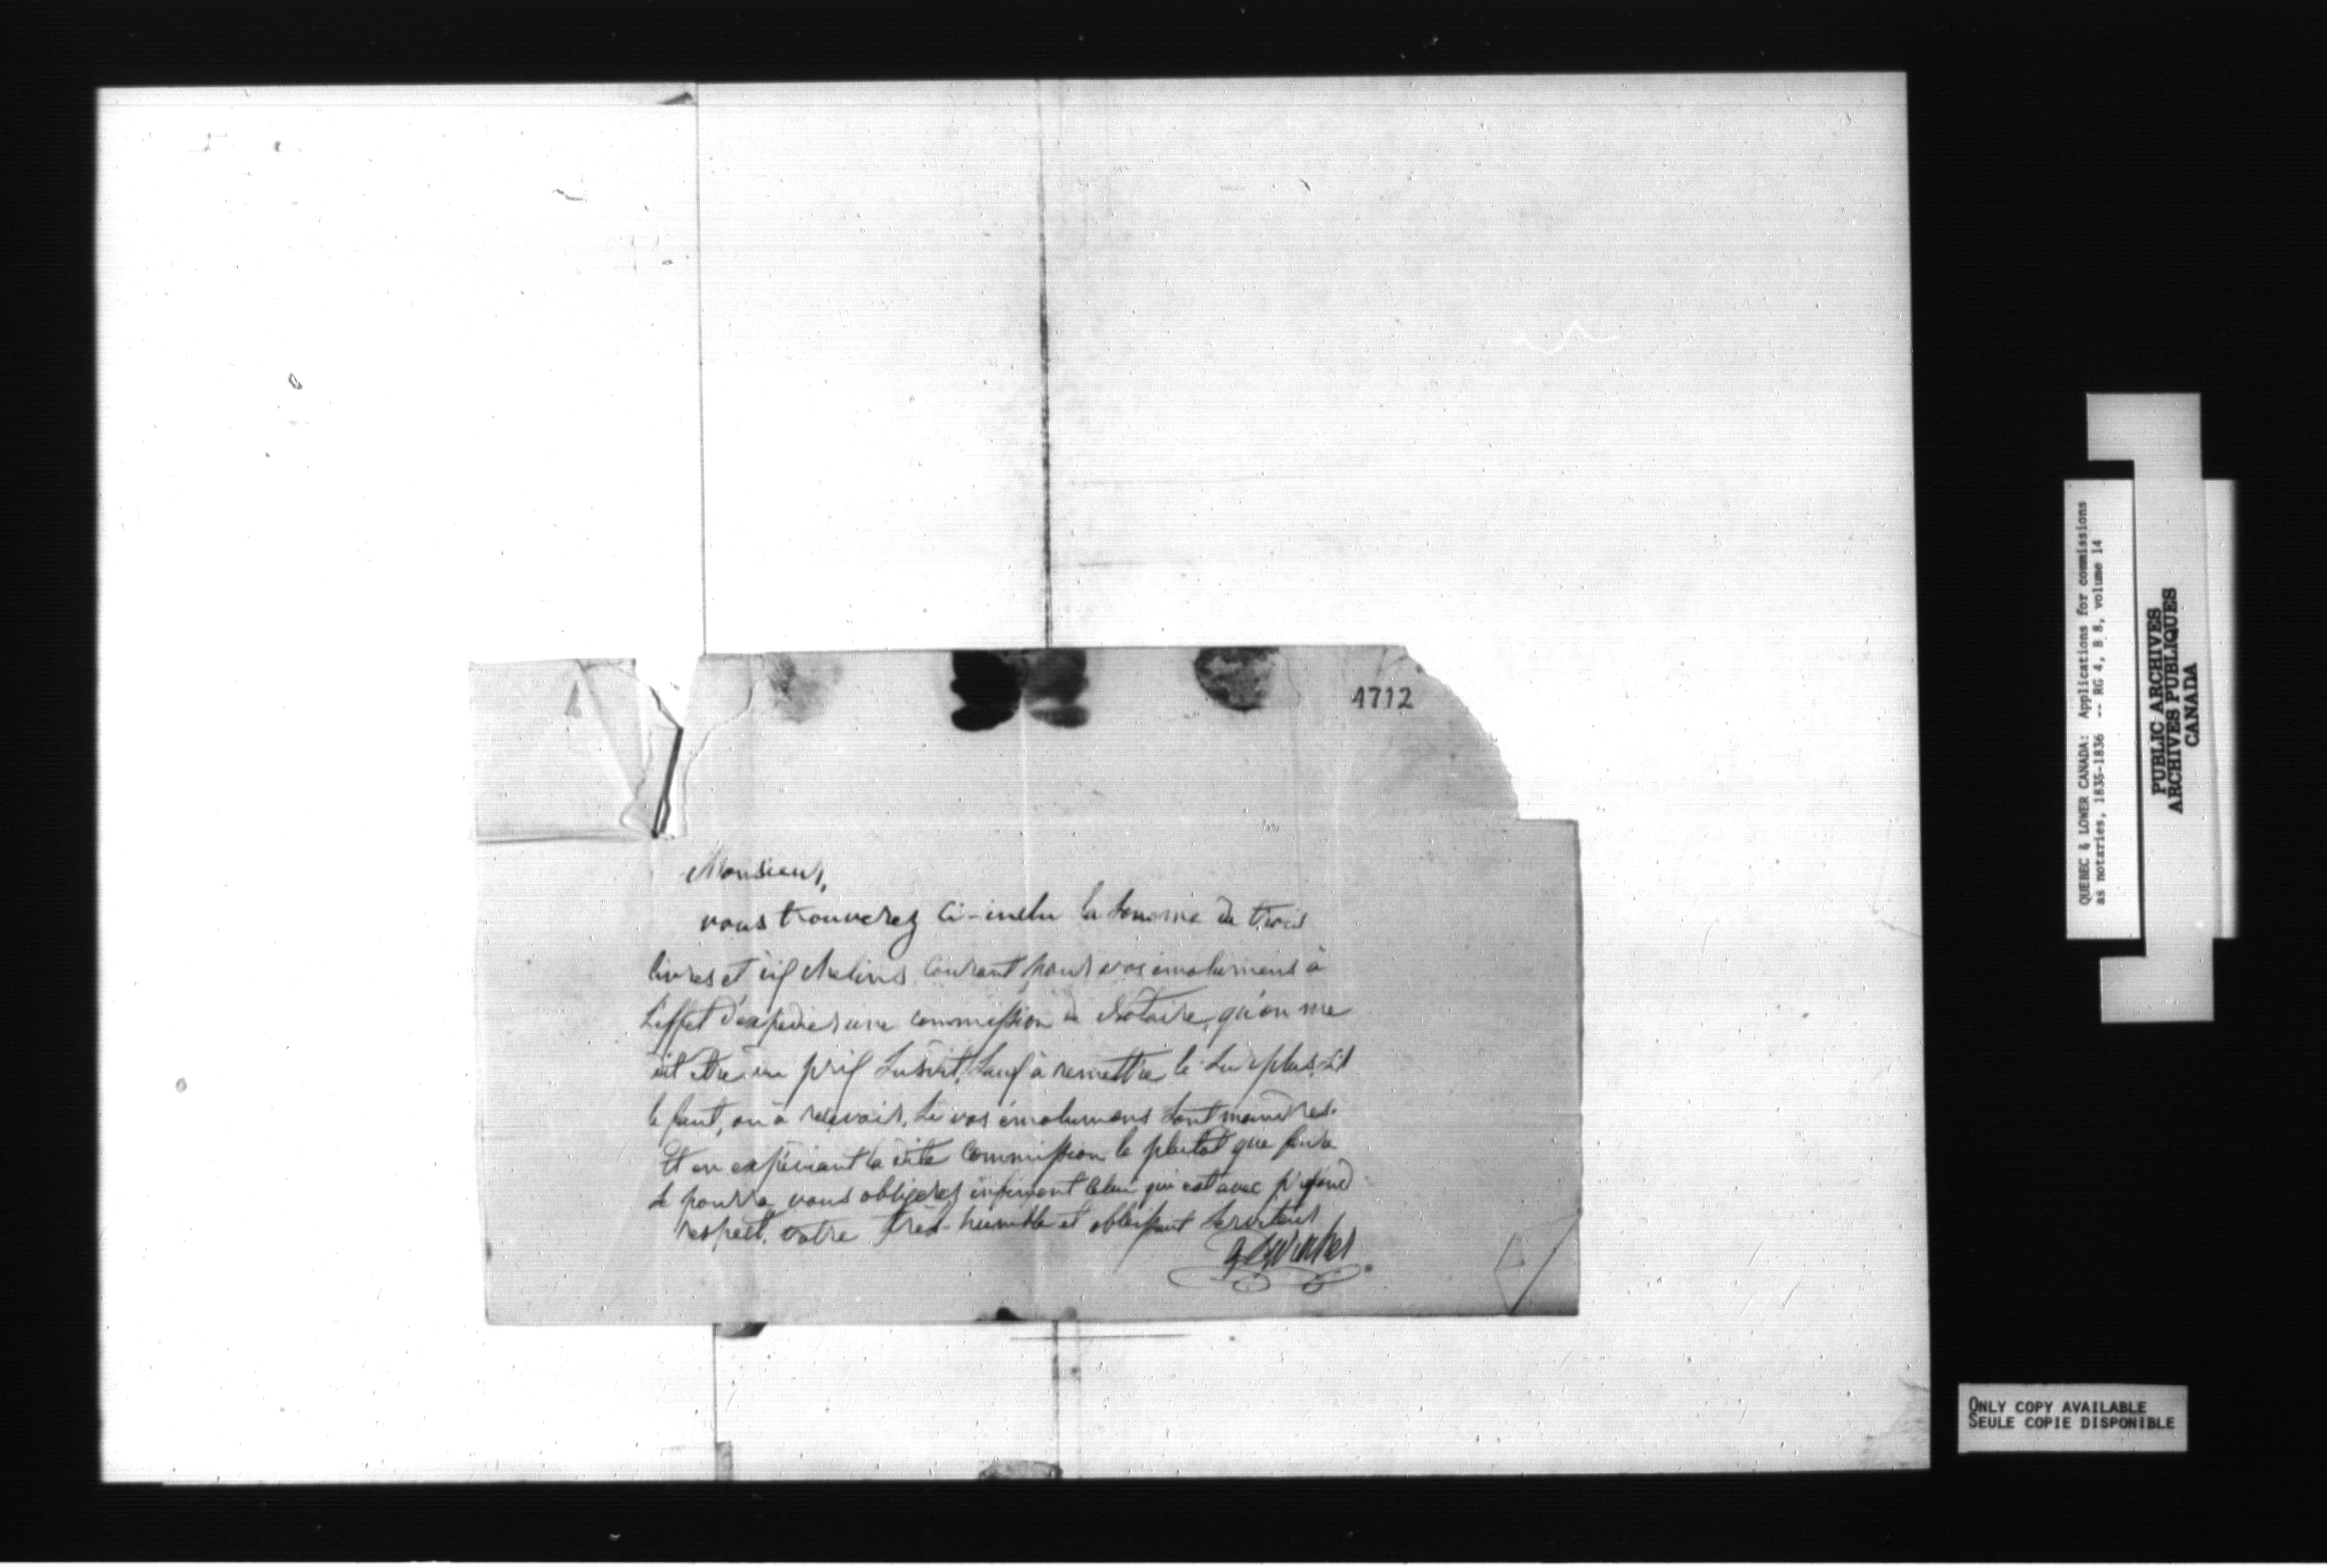 4712
Monsieur,
vous trouverez ci-inclu la somme de trois
livres et chelins courant, pour vos émolumens à
l'effet d'expedier une commission de Notaire, qu'on me
dit être un prif sauf à remettre le surplus, s'il
le faut, ou à recevoir, si vos émolumens sont moindres.
Et en expédiant la dite commission le plutot que faire
se pourra vous obligerez infiniment celui qui est avec profond
respect, votre très-humble et obbéissant serviteur
QUEBEC & LOWER CANADA: Applications for commissions
as notaries, 1835-1836 -- RG 4, B 8, volume 14
PUBLIC ARCHIVES
ARCHIVES PUBLIQUES
CANADA
ONLY COPY AVAILABLE
SEULE COPIE DISPONIBLE